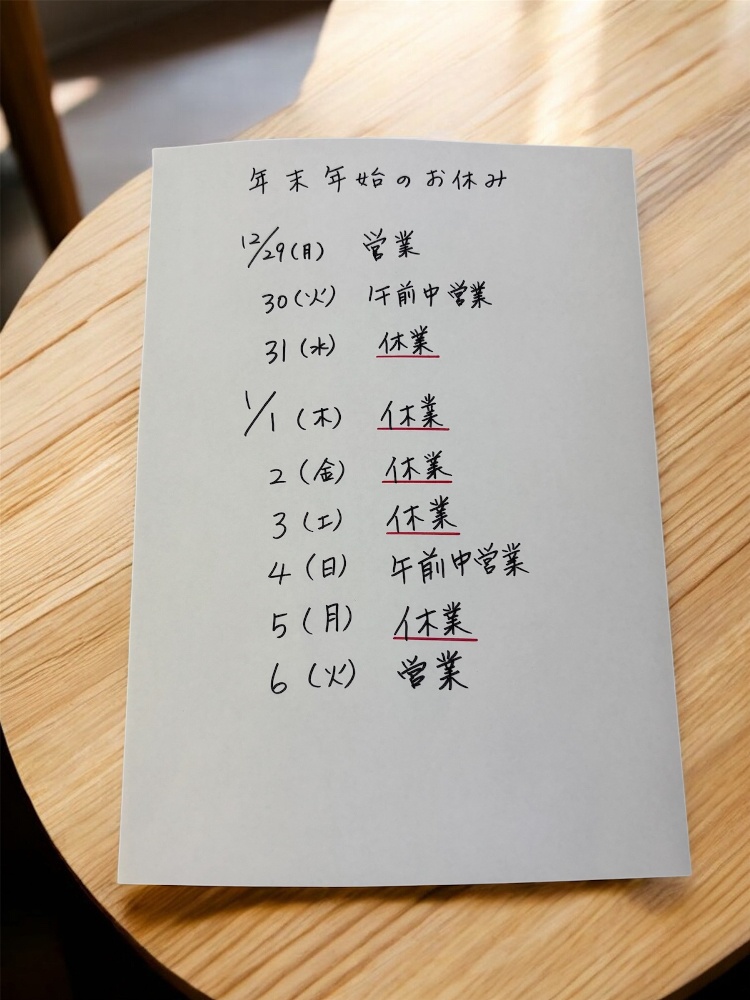 年末年始のお休み
12/29(月) 営業
30(火) 午前中営業
31(水) 休業
1/1(木) 休業
2(金) 休業
3(土) 休業
4(日) 午前中営業
5(月) 休業
6(火) 営業